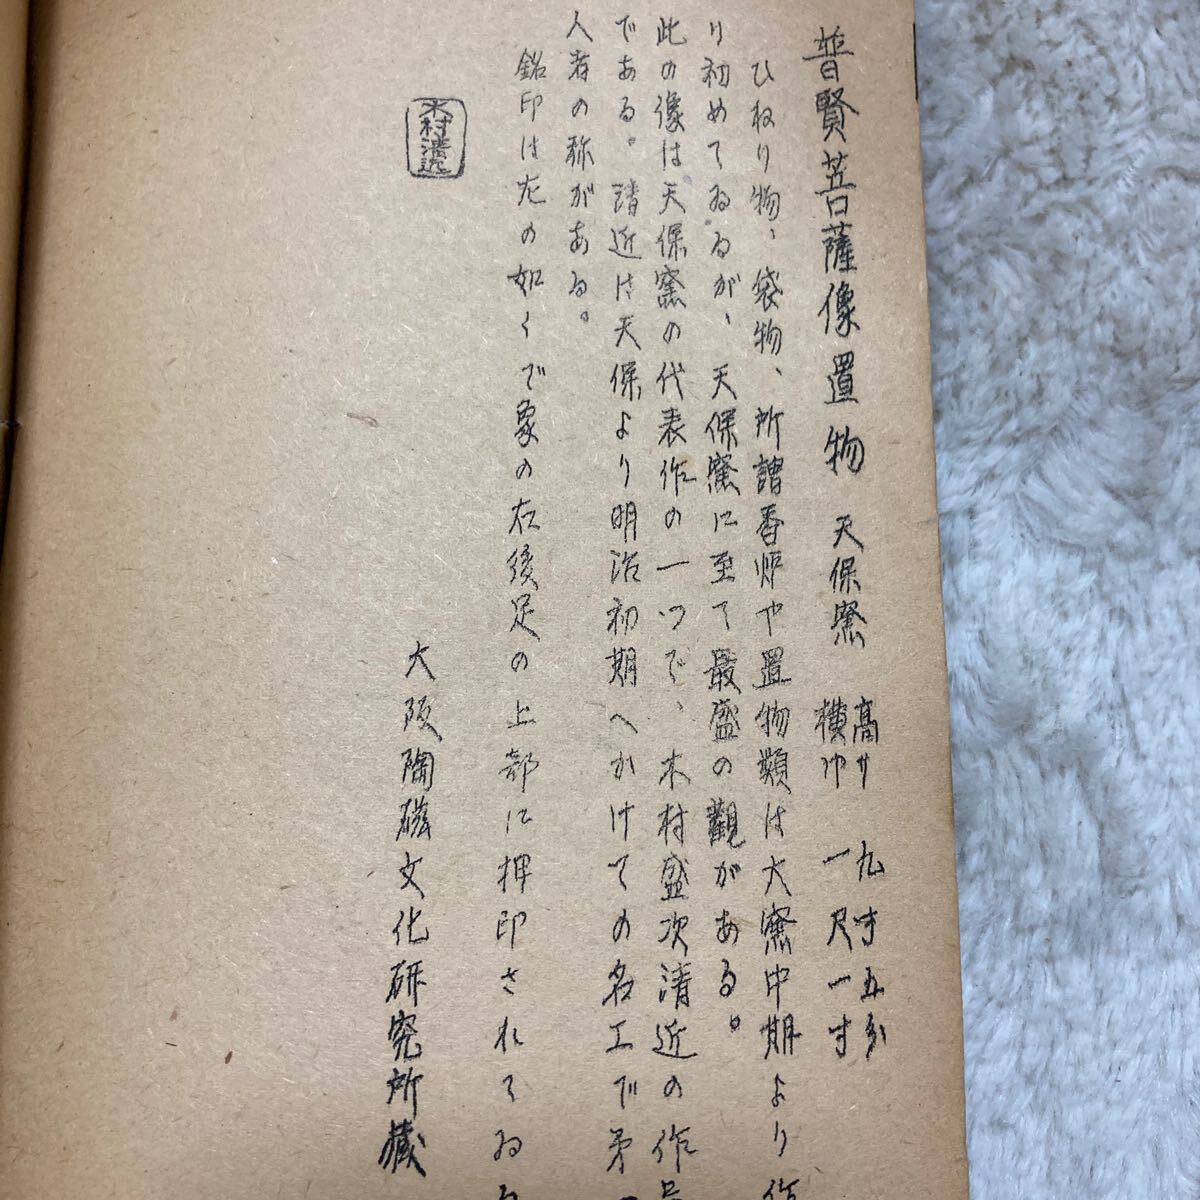 普賢菩薩像置物 天保窯 高サ 九寸五分
横巾 一尺一寸
ひねり物、袋物、所謂香炉や置物類は大窯中期より作
り初めてゐるが、天保窯に至て最盛の觀がある。
此の像は天保窯の代表作の一つで、木村盛次清近の作品
である。清近は天保より明治初期へかけての名工で才一
人者の称がある。
銘印は左の如くで象の右後足の上部に押印されてゐる
木村清近
大阪陶磁文化研究所蔵